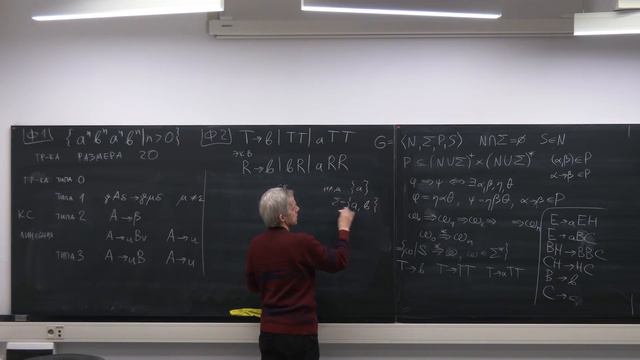 Ф1 {aⁿbⁿaⁿbⁿ|n>0}
ГР-КА РАЗМЕРА 20
ГР-КА ТИПА 0
ТИПА 1 φAδ→φμδ μ≠ε
КС ТИПА 2 A→β
ЛИНЕЙНАЯ A→uBv A→u
ТИПА 3 A→uB A→u
Ф2 T→b|TT|aTT
ЭКВ
R→b|bR|aRR
НАД {a}
{a,b}
G=⟨N,Σ,P,S⟩ N∩Σ=∅ S∈N
P⊆(N∪Σ)⁺×(N∪Σ)* (α,β)∈P
α→β∈P
φ⇒ψ ⇔ ∃α,β,η,θ
φ=ηαθ, ψ=ηβθ, α→β∈P
T→b T→TT T→aTT
E→aEH
E→aBC
BH→BBC
CH→HC
B→b
C→a